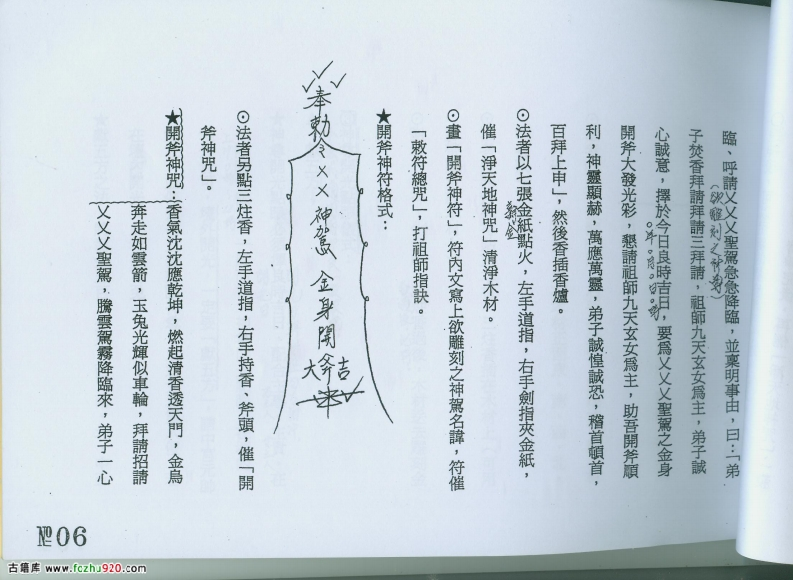 臨、呼請乂乂乂聖駕急急降臨，並稟明事由，曰：「弟
（欲雕刻之神駕）
子焚香拜請拜請三拜請，祖師九天玄女爲主，弟子誠
心誠意，擇於今日良時吉日，要爲乂乂乂聖駕之金身
○年○月○日○時
開斧大發光彩，懇請祖師九天玄女爲主，助吾開斧順
利，神靈顯赫，萬應萬靈，弟子誠惶誠恐，稽首頓首，
百拜上申」，然後香插香爐。
⊙法者以七張金紙點火，左手道指，右手劍指夾金紙，
壽金
催「淨天地神咒」清淨木材。
⊙畫「開斧神符」，符內文寫上欲雕刻之神駕名諱，符催
「敕符總咒」，打祖師指訣。
★開斧神符格式：
奉勅令××神駕金身開斧大吉
⊙法者另點三炷香，左手道指，右手持香、斧頭，催「開
斧神咒」。
★開斧神咒：香氣沈沈應乾坤，燃起清香透天門，金烏
奔走如雲箭，玉兔光輝似車輪，拜請招請
乂乂乂聖駕，騰雲駕霧降臨來，弟子一心
№06
古籍库 www.fozhu920.com